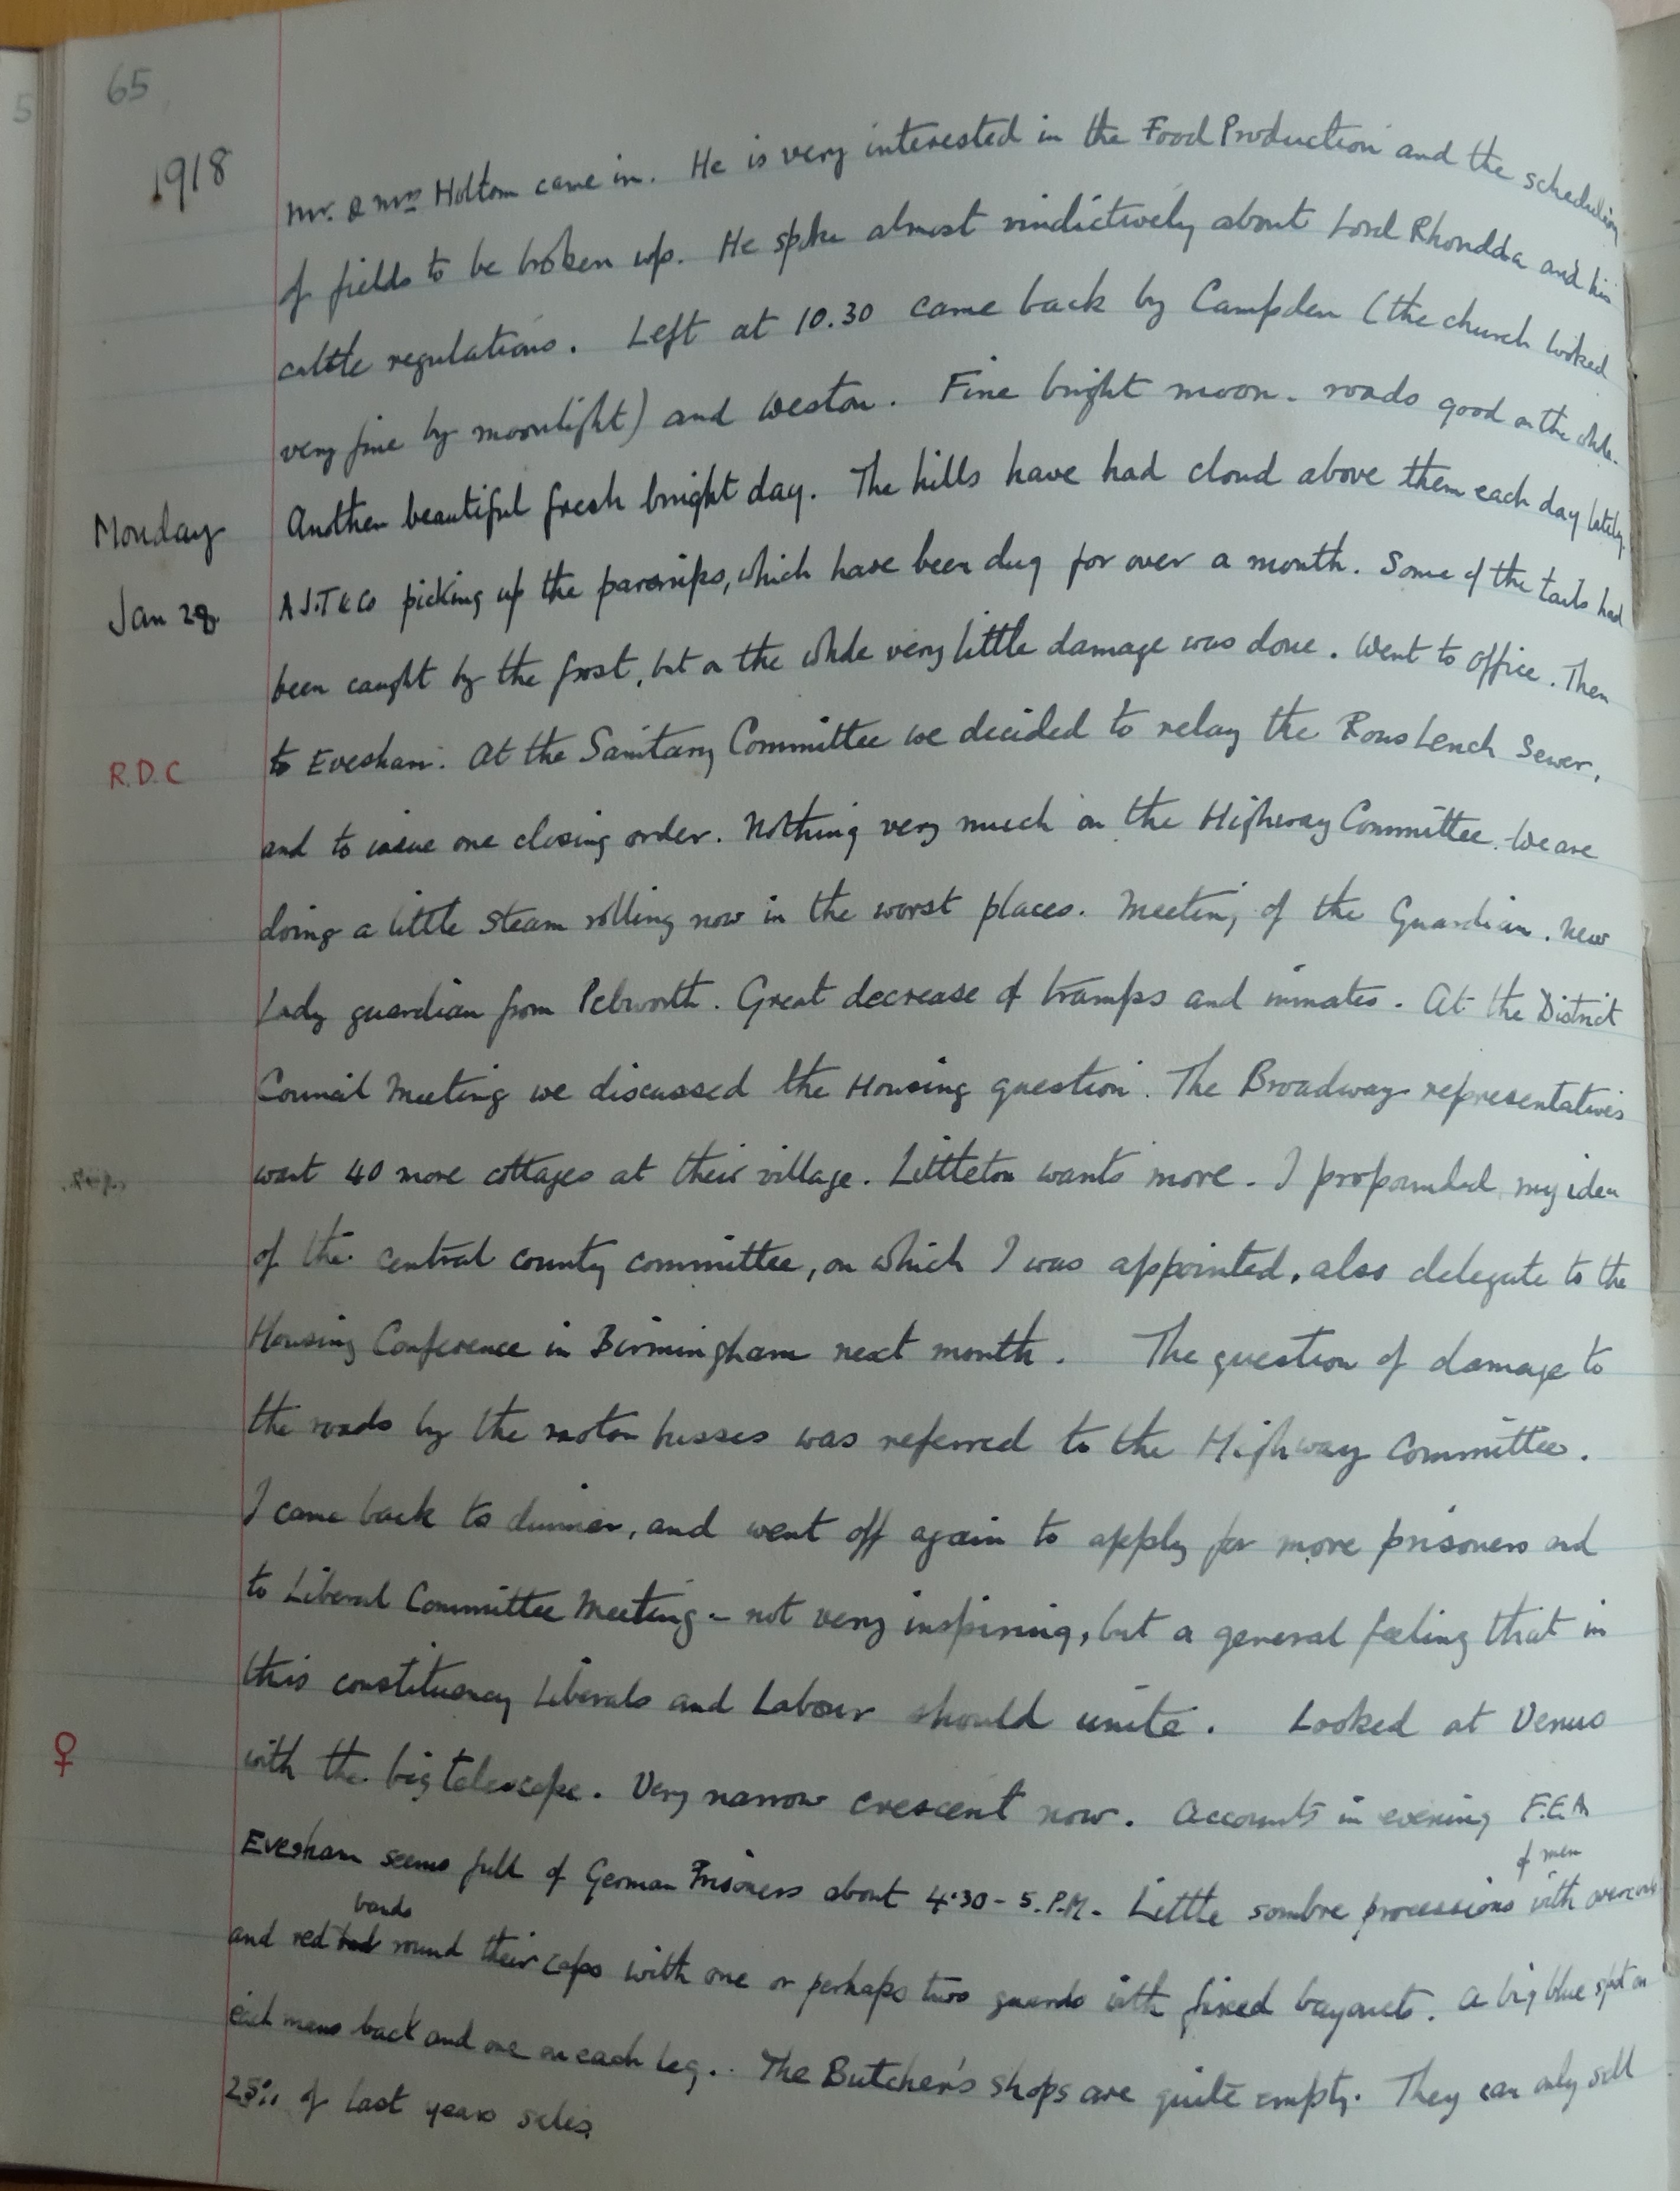 65
1918
Mr. & Mrs Holtom came in. He is very interested in the Food Production and the scheduling
of fields to be broken up. He spoke almost vindictively about Lord Rhondda and his
cattle regulations. Left at 10.30 came back by Campden (the church looked
very fine by moonlight) and Weston. Fine bright moon. roads good on the whole.
Monday
Another beautiful fresh bright day. The hills have had cloud above them each day lately.
Jan 28
A J.T & Co picking up the parsnips, which have been dug for over a month. Some of the tails had
been caught by the frost, but on the whole very little damage was done. Went to office. Then
R.D.C
to Evesham. At the Sanitary Committee we decided to relay the Rous Lench Sewer,
and to issue one closing order. Nothing very much on the Highway Committee. We are
doing a little steam rolling now in the worst places. Meeting of the Guardian. New
Lady guardian from Pebworth. Great decrease of tramps and inmates. At the District
Council Meeting we discussed the Housing question. The Broadway representatives
want 40 more cottages at their village. Littleton wants more. I propounded my idea
of the central county committee, on which I was appointed, also delegate to the
Housing Conference in Birmingham next month. The question of damage to
the roads by the motor busses was referred to the Highway Committee.
I came back to dinner, and went off again to apply for more prisoners and
to Liberal Committee Meeting - not very inspiring, but a general feeling that in
this constituency Liberals and Labour should unite. Looked at Venus
♀
with the big telescope. Very narrow crescent now. Accounts in evening F.E.A
Evesham seems full of German Prisoners about 4.30 - 5. P.M. Little sombre processions of men with overcoats
and red bands round their caps with one or perhaps two guards with fixed bayonets. A big blue spot on
each mans back and one on each leg.. The Butcher's shops are quite empty. They can only sell
25% of last years sales.